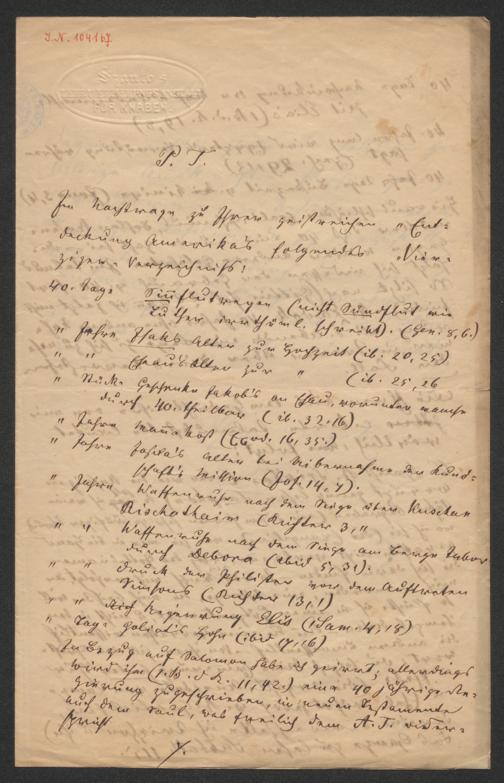 I.N. 104167
Szántó's
FÜR KNABEN
P. T.
Im Nachtrage zu Ihrer geistreichen „Ent-
deckung Amerika's folgendes „Vier-
ziger-Verzeichniß:
40. Tage Sinflutregen (nicht Sündflut wie
Luther irrthüml. schreibt). (Gen. 8, 6.)
" Jahre Isaks Alter zur Hochzeit (ib. 20, 25)
" " Esau's Alter zur " (ib. 25, 26
" Stücke Geschenke Jakob's an Esau, worunter manche
durch 40. theilbar (ib. 32. 16)
" Jahre Mannakost (Exod. 16, 35.)
" Jahre Josua's Alter bei Uibernahme der Kund-
schafts Mission (Jos. 14, 7).
" Jahre Waffenruhe nach dem Siege über Kuschan
Rischathaim (Richter 3, 11
" " Waffenruhe nach dem Siege am Berge Tabor
durch Debora (ibid 5, 31).
" " Druck der Philister vor dem Auftreten
Simsons (Richter 13, 1)
" " Regierung Elis (1 Sam. 4, 18)
" Tage Goliat's Hohn (ibid 17, 16)
In Bezug auf Salomon habe ich geirrt, allerdings
wird ihm (1. B. d. K. 11, 42.) eine 40 jährige Re-
gierung zugeschrieben, im neuen Testamente
auch dem Saul, was freilich dem A. T. wider-
spricht